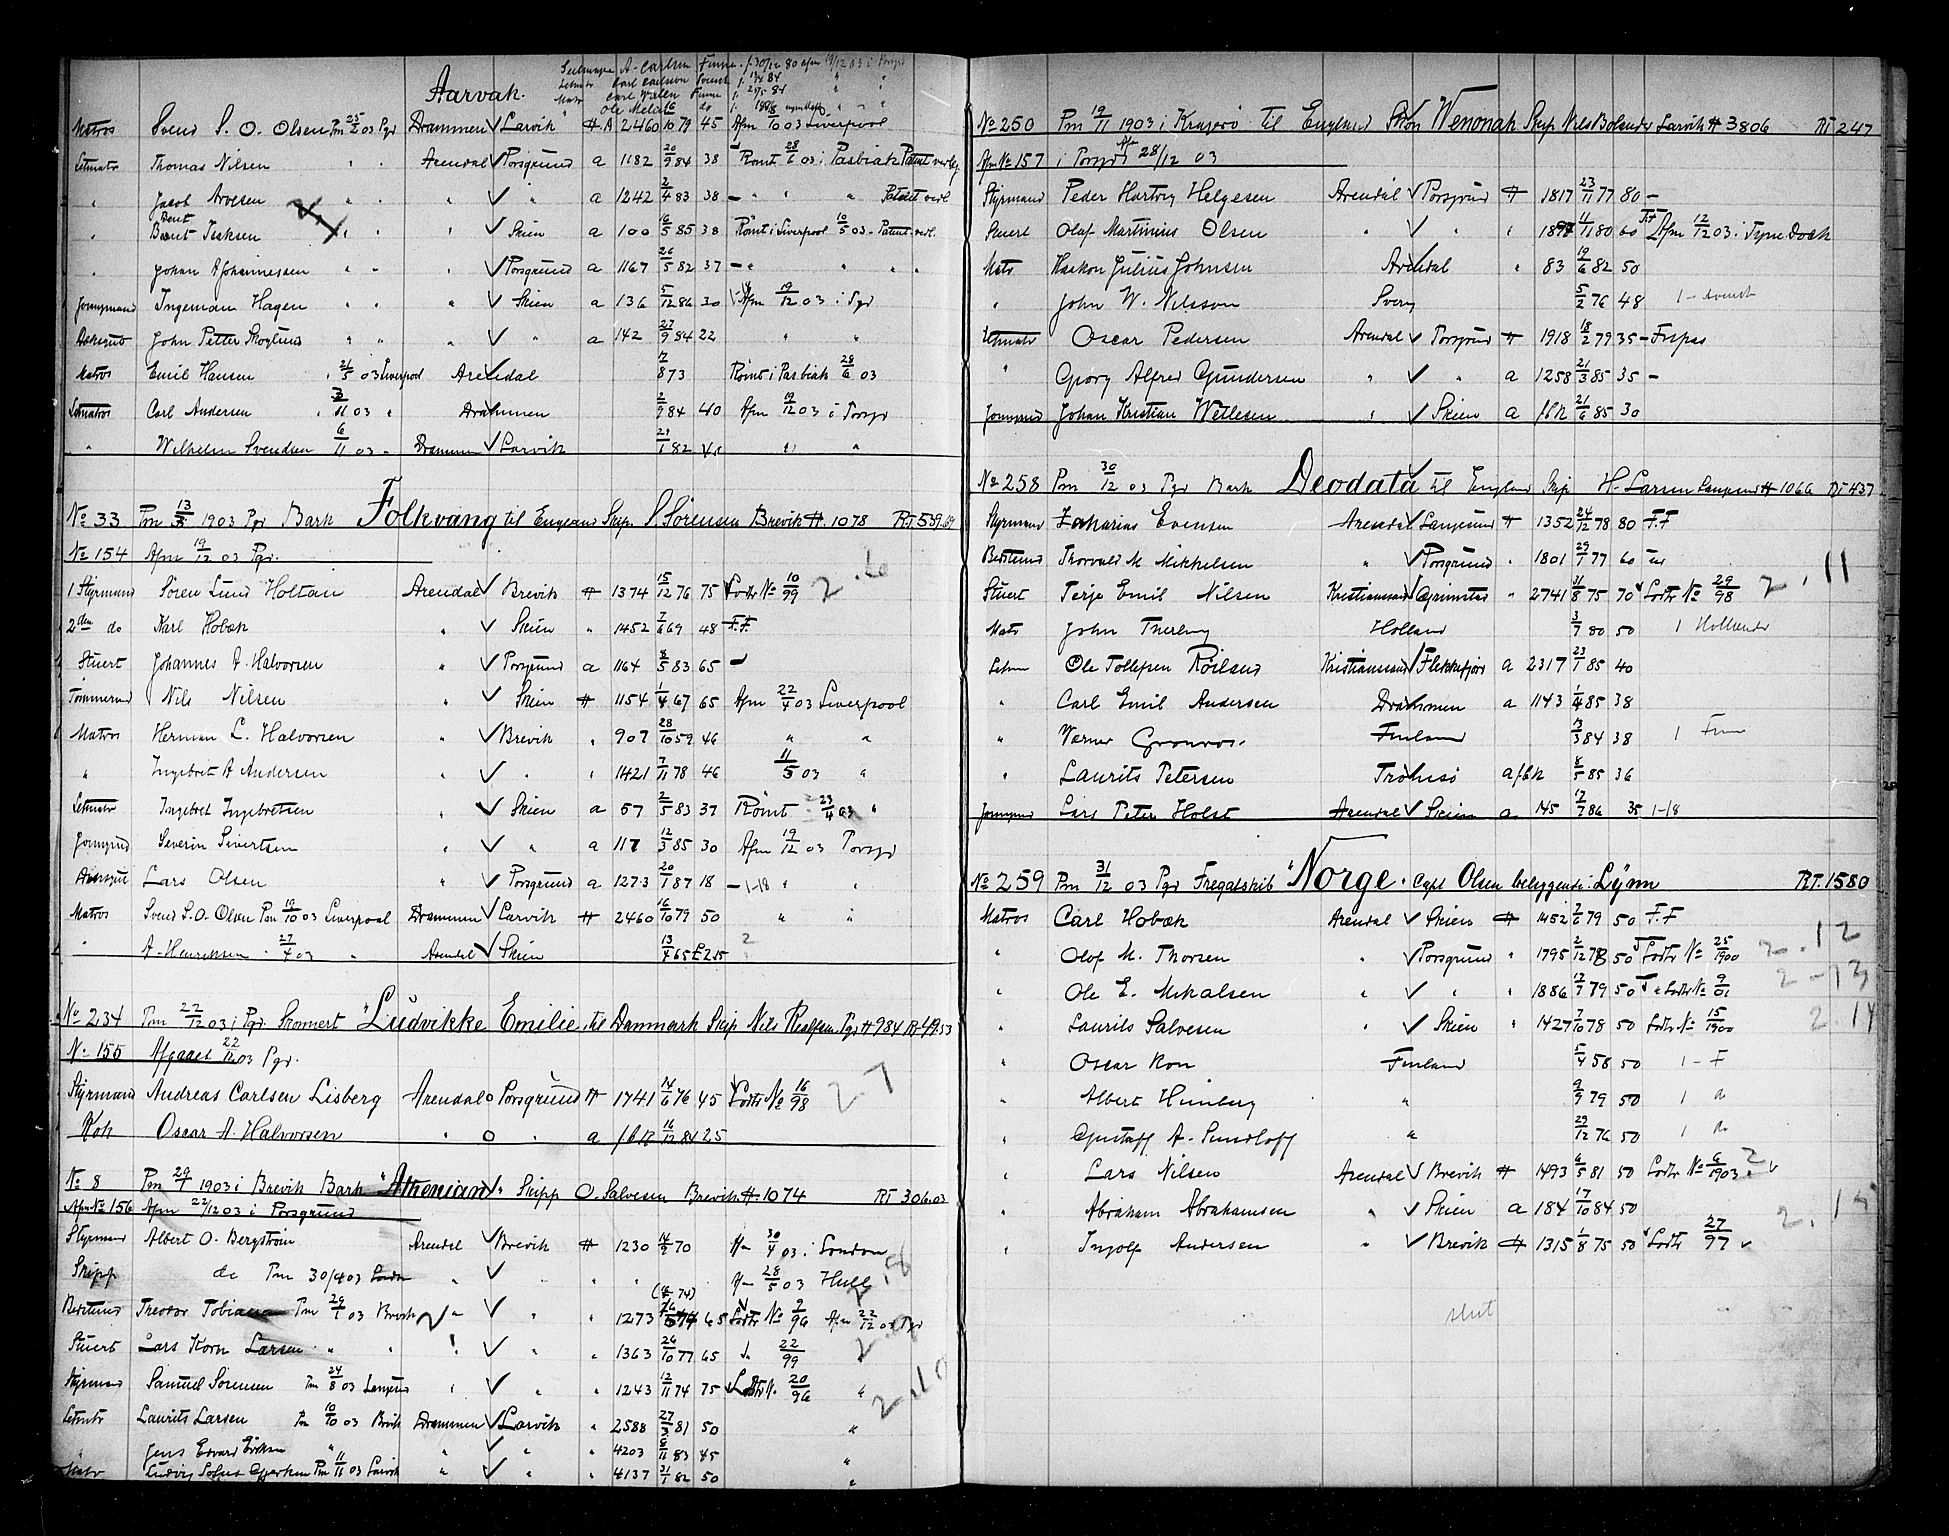 Aarvak.
Matros Svend S. O. Olsen Pm 25/2 03 Pgr Drammen Larvik # A 2460 16/10 79 45 Afm /10 03 Liverpool
Letmatr Thomas Nilsen " " Arendal Porsgrund a 1182 20/9 84 38 Römt 28/6 03 i Pasbiak Patent verl
" Jacob Aroesen " " " " a 1242 2/4 83 38 – " " " Patent verl
" Bernt Isaksen " " " Skien a 100 16/5 85 38 Römt i Liverpool 10/5 03 - Patent verl.
" Johan A Johannessen " " " Porsgrund a 1167 26/5 82 37 – " " " "
Jonngmand Ingeman Hagen " " " Skien a 136 5/12 86 30 Afm 19/12 03 i Pgr
Dæksgut John Petter Skoglund " " " " a 142 27/9 84 22 " "
Matros Emil Hansen " 21/5 03 Liverpool Arendal /8 73 Römt i Pasbiak 28/6 03
Letmatros Carl Andersen " 3/11 03 " Drammen 2/9 84 40 Afm 19/12 03 i Porsgr
" Wilhelm Svendsen 6/11 03 " Drammen Larvik /1 82 " "
No 33 Pm 13/3 1903 Pgr Bark Folkvang til England Skip. S. Sörensen Brevik # 1078 RT 539.
No 154 Afm 19/12 03 Pgr.
1 Styrmand Sören Lund Holtan Arendal Brevik # 1374 15/12 76 75 Lodtr No 10/99 2.6
2den do Karl Hobæk " Skien " 1452 7/6 69 48 F.F.
Stuert Johannes A. Halvorsen " Porsgrund a 1164 8/5 83 65 –
Tömmermd Nils Nilsen " Skien # 1154 1/4 67 65 Afm 22/4 03 Liverpool
Matros Herman L. Halvorsen " Brevik " 907 28/10 59 46 " "
" Ingebret A Andersen " " " 1421 7/11 78 46 11/5 03 "
Letmatr Ingebret Ingebretsen " Skien a 57 2/5 83 37 Römt 23/4 03 "
Jonngmd Severin Sivertsen " " a 117 12/3 85 30 Afm 19/12 03 Porsgr
Dæksgut Lars Olsen " Porsgrund a 1273 20/1 87 18 – 1-18 " "
Matros Svend S. O. Olsen Pm 19/10 03 Liverpool Drammen Larvik # 2460 16/10 79 50 " "
" A. Henriksen " 27/4 03 " Arendal Skien 13/7 65 ?
No 234 Pm 22/12 03 i Pgr. Skonnert "Ludvikke Emilie" til Danmark Skip Nils Realfsen Pgr # 984 RT 49.53
No 155 Afgaaet 22/12 03 Pgr.
Styrmand Andreas Carlsen Lisberg Arendal o Porsgrund # 1741 14/6 76 45 Lodtr No 16/98 2.7
Kok Oscar A. Halvorsen " o " a fbk 16/12 84 25
No 8 Pm 29/1 1903 i Brevik Bark "Athenian" Skipp O. Salvesen Brevik # 1074 RT 306.03
Afm No 156 Afm 22/12 03 i Porsgrund
Styrmand Albert O. Bergström Arendal Brevik # 1230 14/9 70 Afm 30/4 03 i London
Skipp do Pm 30/4 03 London " " " " Af– 28/5 03 Hull 2.8
Bestmnd Treodor Tobias Pm 29/1 03 Brevik " " " 1273 65 Lodtr No 9/96 Afm 22/12 03 Pgr
Stuert Lars Korn Larsen " " " " " 1363 26/10 77 65 do 22/99 " 2.9
Styrmand Samuel Sörensen Pm 24/8 03 Langsund " " " 1243 12/11 74 75 Lodtr No. 20/96 " 2.10
Letmtr Laurits Larsen Pm 10/10 03 Brvik Drammen Larvik " 2588 27/3 81 50 "
" Jens Edvard Eriksen " " " " 4203 8/11 83 45 "
Matr Ludvig Pm 11/11 03 Larvik " " " 4137 31/1 82 50 "
No 250 Pm 19/11 1903 i Kragerö til England Skon Wenonah Skip Nils Bolander Larvik # 3806 RT 247
Afm No 157 i Porsgr Afm 28/12 03
Styrmand Peder Hartvig Helgesen Arendal Porsgrund # 1817 23/11 77 80 –
Stuert Olaf Martinius Olsen " " " 189 11/11 80 60 Afm 12/12 03 i Tyne Dock
Matr Haakon Julius Johnsen Arendal " 83 19/6 82 50
" John W. Nilsson Sverg 5/2 76 48 1 – svensk
Letmatr Oscar Pedersen Arendal Porsgrund # 1918 18/2 79 35 – Fripas
" Georg Alfred Gundersen " " a 1258 21/3 85 35 –
Jonngmnd Johan Kristian Wetlesen " Skien a fbk 21/6 85 30
No 258 Pm 30/12 03 Pgr Bark Deodata til England Skip H. Larsen Langesund # 1066 RT 437
Styrmand Zakarias Evensen Arendal Langesund # 1352 24/12 78 80 F.F
Bestmnd Thorvald M Mikkelsen " Porsgrund " 1801 29/7 77 60
Stuert Terje Emil Nilsen Kristiansand Grimstad " 2741 31/8 75 70 Lodtr No 29/98 2.11
Matr John Therling Holland 3/7 80 50 1 Hollender
Letm Ole Tollefsen Röilsnd Kristiansand Flekkefjord a 2317 23/1 85 40
" Carl Emil Andersen Drammen a 1143 1/4 85 38
" Verner Gronros. Finland 13/3 84 38 1 Finn
" Laurits Petersen Tromsö a fbk 8/5 85 36
Jonngmnd Lars Peter Holst Arendal Skien a 145 17/7 86 35 1-18
No 259 Pm 31/12 03 Pgr Fregatskib "Norge". Capt Olsen beliggende i Lynn RT. 1580
Matros Carl Hobæk Arendal Skien # 1452 7/6 79 50 F.F
" Olof M. Thorsen " Porsgrund " 1795 2/12 78 50 Lodtr No 25/1900 2.12
" Ole E. Mikalsen " " " 1886 17/7 79 50 Lodtr No 9/01 2-13
" Laurits Salvesen " Skien " 1427 7/10 78 50 Lodtr No 15/1900 2.14
" Oscar Kon Finland 5/4 58 50 1 – F
" Albert Heimberg " 9/9 79 50 1 do
" Gustaff A. Sundloff " 29/12 76 50 1 do
" Lars Nilsen Arendal Brevik # 1493 6/5 81 50 Lodtr No 6/1903
" Abraham Abrahamsen " Skien a 184 17/10 84 50 2.15
" Ingolf Andersen " Brevik # 1315 1/8 75 50 Lodtr 27/97
slut